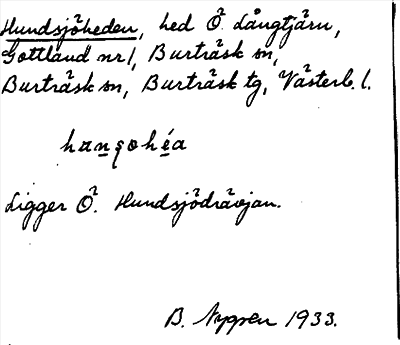 Hundsjöheden, hed Ö. Långtjärn,
Gottland nr 1, Burträsk sn,
Burträsk sn, Burträsk tg, Västerb. l.
hanʂohéa
Ligger Ö. Hundsjödrävjan.
B. Nygren 1933.